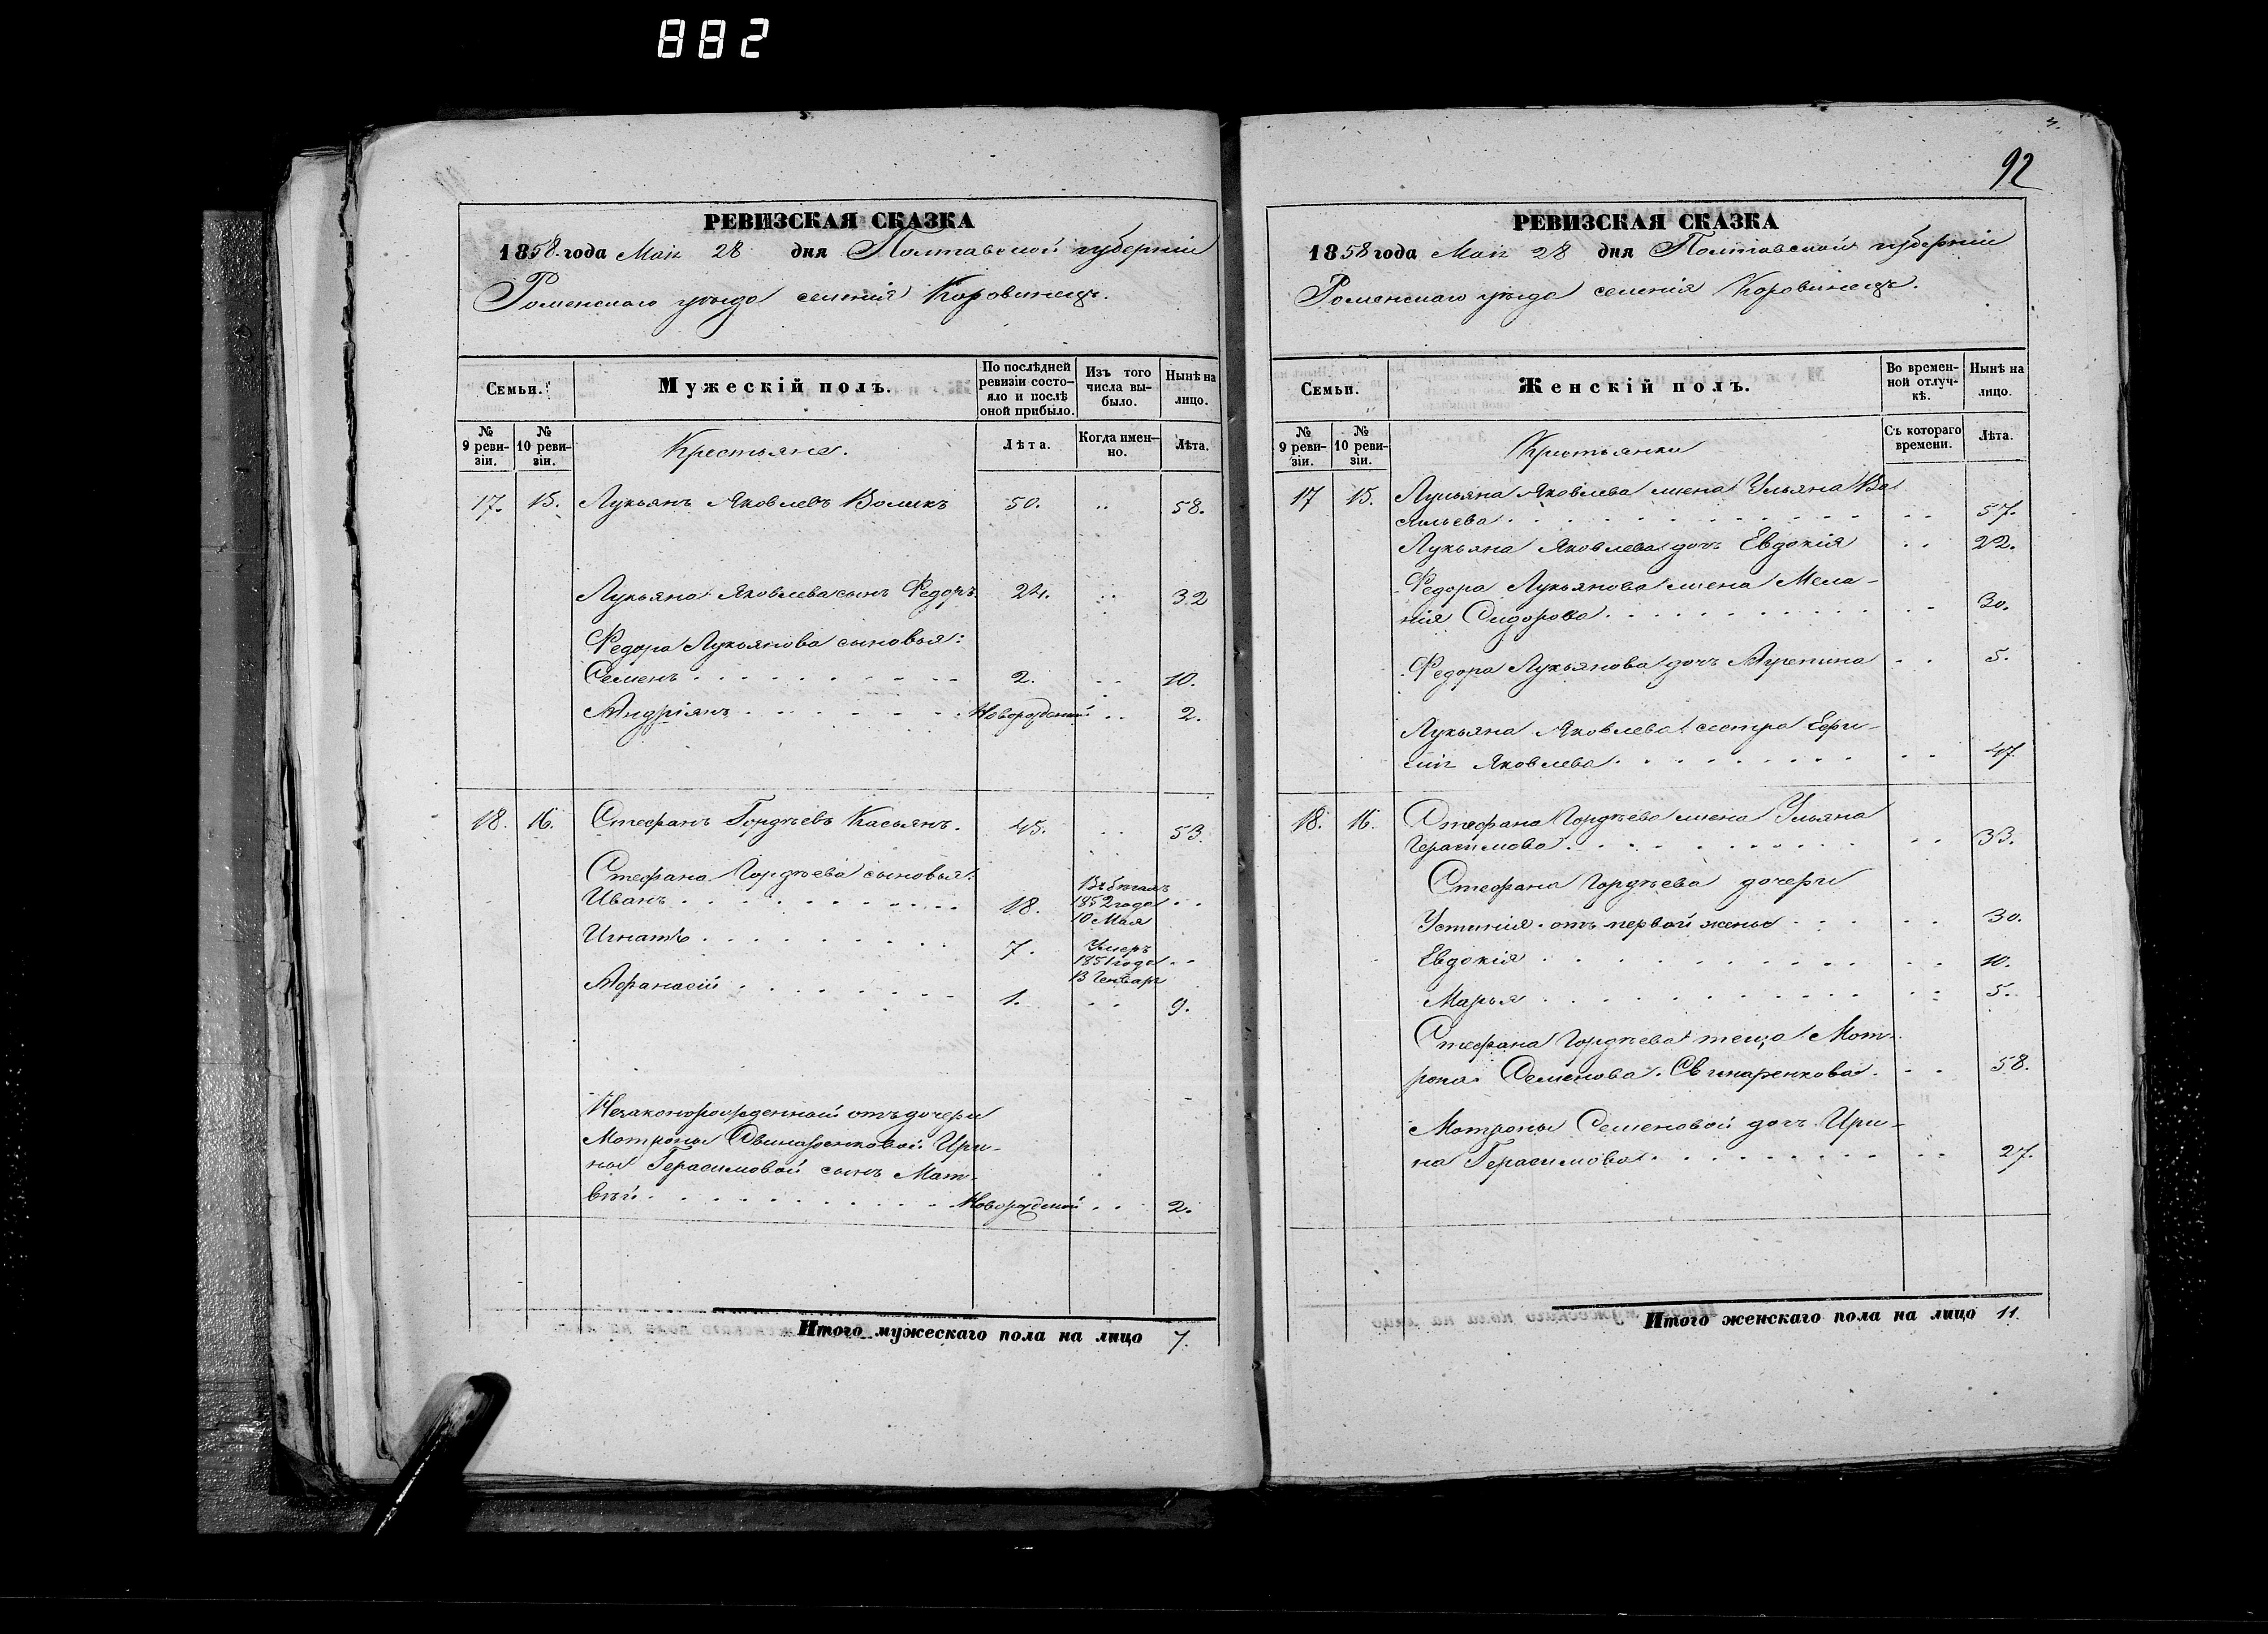 882
РЕВИЗСКАЯ СКАЗКА
1858 года Мая 28 дня Полтавской губерніи
Роменскаго уѣзда селенія Коровинецъ.
Семьи.
Мужескій полъ.
По послѣдней ревизіи состо-
яло и послѣ оной прибыло.
Изъ того числа вы-
было.
Нынѣ на лицо.
№ 9 реви-
зіи.
№ 10 реви-
зіи.
Крестьяне.
Лѣта.
Когда имен-
но.
Лѣта.
17. 15. Лукьянъ Яковлевъ Воликъ 50. 58.
Лукьяна Яковлева сынъ Федоръ 24. 32
Федора Лукьянова сыновья:
Семенъ 2. 10.
Андріянъ Новорожденный 2.
18. 16. Стефанъ Гордѣевъ Касьянъ. 45. 53.
Стефана Гордѣева сыновья:
Иванъ 18. Въ бѣгахъ 1852 года 10 Мая
Игнатъ 7. Умеръ 1851 года В Генваре
Афанасій 1. 9.
Незаконорожденный отъ дочери
Мотроны Свинаренковой Ири-
ны Герасимовой сынъ Мат-
вѣй Новорожденный 2.
Итого мужескаго пола на лицо 7.
92
РЕВИЗСКАЯ СКАЗКА
1858 года Мая 28 дня Полтавской губерніи
Роменскаго уѣзда селенія Коровинецъ.
Семьи.
Женскій полъ.
Во времен-
ной отлуч-
кѣ.
Нынѣ на лицо.
№ 9 реви-
зіи.
№ 10 реви-
зіи.
Крестьянки
Съ котораго времени.
Лѣта.
17 15. Лукьяна Яковлева жена Ульяна Ва
сильева 57.
Лукьяна Яковлева дочь Евдокія 22.
Федора Лукьянова жена Мела-
нія Сидорова 30.
Федора Лукьянова дочь Агрепина 5.
Лукьяна Яковлева сестра Ефи-
мія Яковлева 47
18. 16. Стефана Гордѣева жена Ульяна
Герасимова 33.
Стефана Гордѣева дочери
Устинія отъ первой жены 30.
Евдокія 10.
Марья 5.
Стефана Гордѣева теща Мот-
рона Семенова Свинаренкова 58.
Мотроны Семеновой дочь Ири-
на Герасимова 27.
Итого женскаго пола на лицо 11.